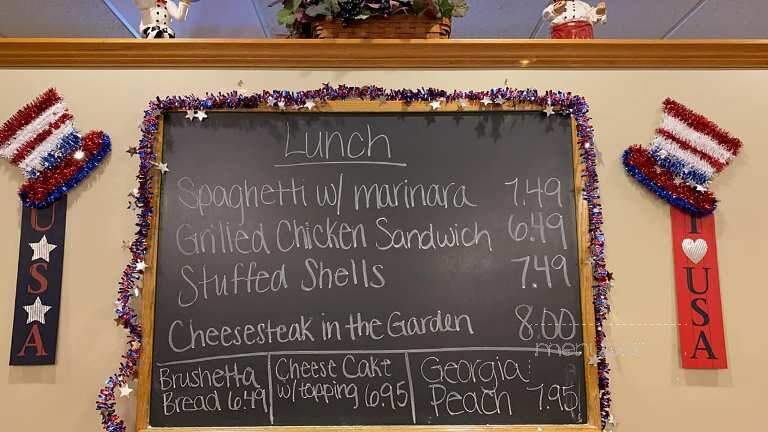 Lunch
Spaghetti w/ marinara 7.49
Grilled Chicken Sandwich 6.49
Stuffed Shells 7.49
Cheesesteak in the Garden 8.00
Brushetta
Bread 6.49
Cheese Cake
w/ topping 6.95
Georgia
Peach 7.95
USA
I USA